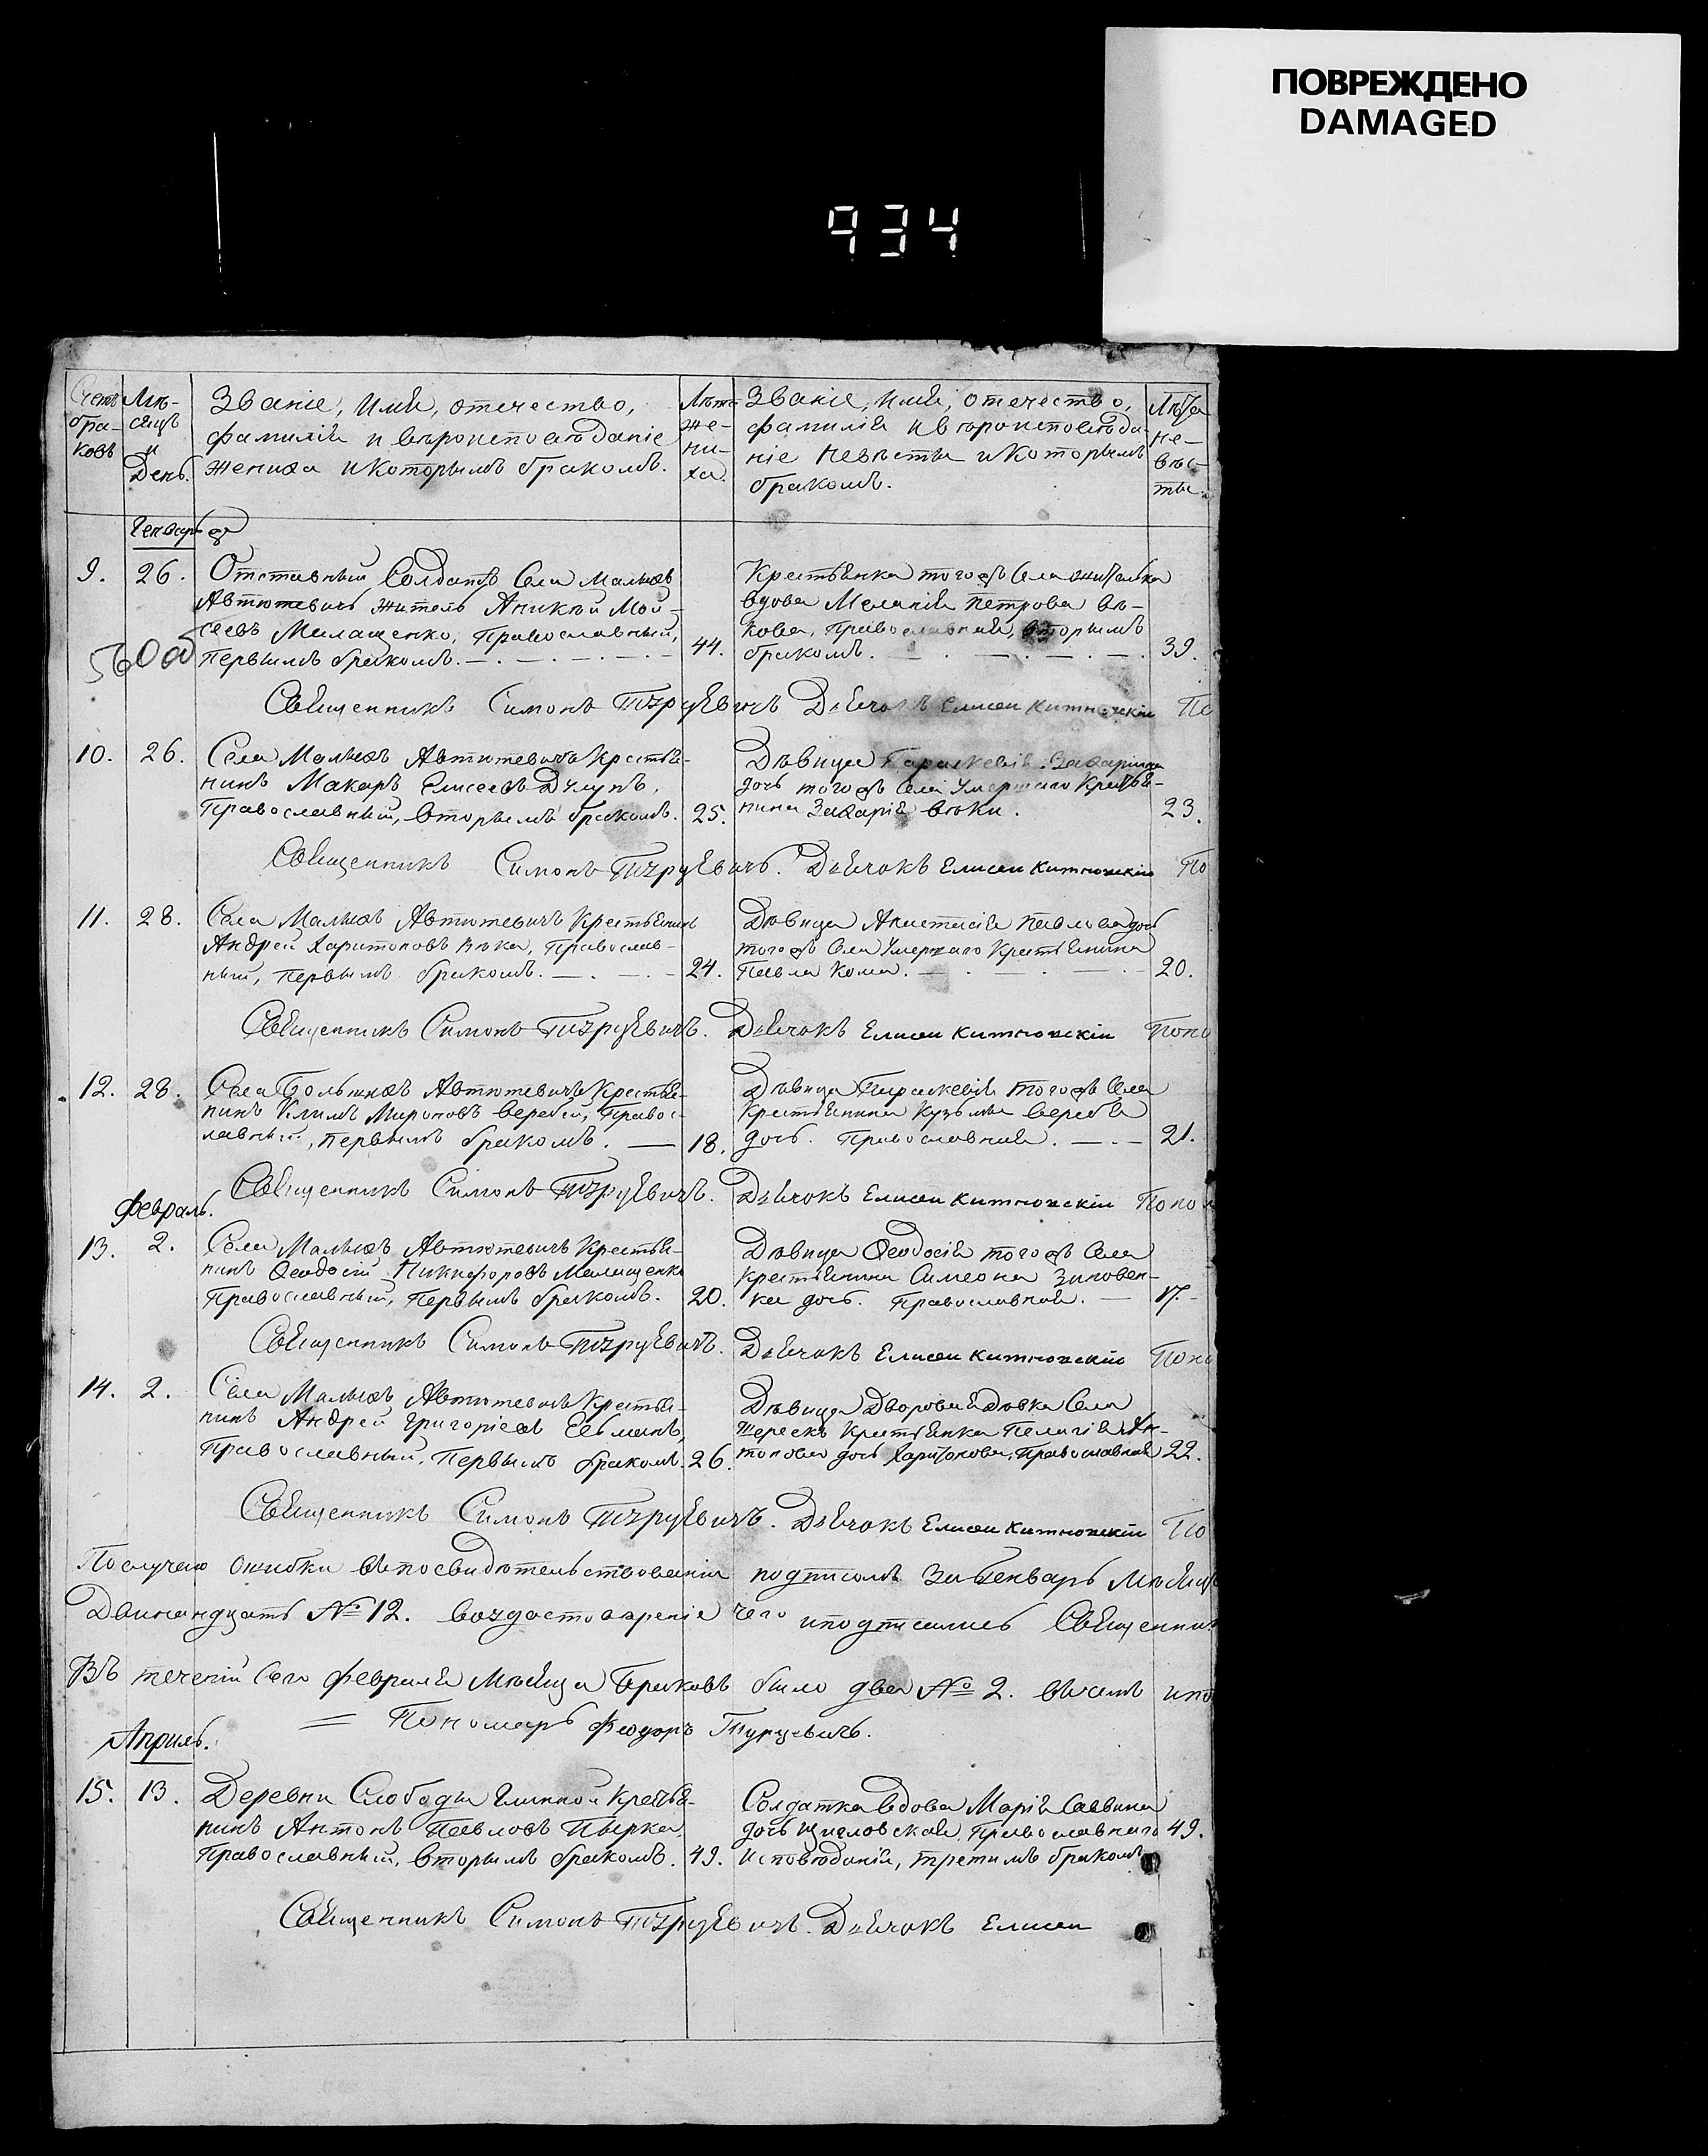 ПОВРЕЖДЕНО
DAMAGED
934
Счетъ браковъ
Мѣсяцъ и День.
Званіе, имя, отечество,
фамилія и вѣроисповѣданіе
жениха и которымъ бракомъ.
Лѣта жениха.
Званіе, имя, отечество,
фамилія и вѣроисповѣда-
ніе невѣсты и которымъ
бракомъ.
Лѣта невѣсты.
Генваря
9. 26. Отставный Солдатъ Села Малыхъ
Автютевичъ житель Аникѣй Мой-
сеевъ Малащенко, Православный,
первымъ бракомъ. 44.
Крестьянка того жъ Села жителька
вдова Меланія Петрова Вѣ-
кова, православная, вторымъ
бракомъ. 39.
560об
Священникъ Симонъ Турцевичъ Дьячокъ Елисей Китновскій По
10. 26. Села Малыхъ Автютевичъ Крестья-
нинъ Макаръ Елисеевъ
Православный, вторымъ бракомъ. 25.
Дѣвица Параскевія Захаріина
дочь того жъ Села Умершаго Крестья-
нина Захарія Вѣки. 23.
Священникъ Симонъ Турцевичъ. Дьячокъ Елисей Китновскій По
11. 28. Села Малыхъ Автютевичъ Крестьянинъ
Андрей Харитоновъ Вѣка, Православ-
ный, первымъ бракомъ. 24.
Дѣвица Анастасія Павлова дочь
того жъ Села Умершаго Крестьянина
Павла Кома. 20.
Священникъ Симонъ Турцевичъ. Дьячокъ Елисей Китновскій Поно
12. 28. Села Большихъ Автютевичъ Крестья-
нинъ Климъ Мироновъ Веребей, Правос-
лавный, первымъ бракомъ. 18.
Дѣвица Параскевія того жъ Села
Крестьянина Кузьмы Веребья
дочь. Православная. 21.
Священникъ Симонъ Турцевичъ. Дьячокъ Елисей Китновскій Поно
Февраль.
13. 2. Села Малыхъ Автютевичъ Крестья-
нинъ Ѳеодосій Никифоровъ Малащенко
Православный, Первымъ бракомъ. 20.
Дѣвица Ѳеодосія того жъ Села
Крестьянина Симеона Зиновен-
ка дочь. Православная. 17.
Священникъ Симонъ Турцевичъ. Дьячокъ Елисей Китновскій Поно
14. 2. Села Малыхъ Автютевичъ Крестья-
нинъ Андрей Григоріевъ
Православный, Первымъ бракомъ. 26.
Дѣвица Дворовая Дѣвка Села
Шерекъ Крестьянка Пелагія Ан-
тонова дочь Харитонова, Православная 22.
Священникъ Симонъ Турцевичъ. Дьячокъ Елисей Китновскій По
По случаю ошибки въ посвидѣтельствованіи подписомъ За Генварь Мѣсяцъ
Двинандцать № 12. в удостовѣреніе чего и подписались Священни
Въ теченіи сего Февраля Мѣсяца Браковъ было два № 2. в чемъ и по
= Пономарь Феодоръ Турцевичъ.
Апрель.
15. 13. Деревни Слободы Глинной Крестья-
нинъ Антонъ Павловъ Пырка,
Православный, вторымъ бракомъ. 49.
Солдатка вдова Марія Саввина
дочь Православнаго 49.
исповѣданія, третимъ бракомъ
Священникъ Симонъ Турцевичъ. Дьячокъ Елисей